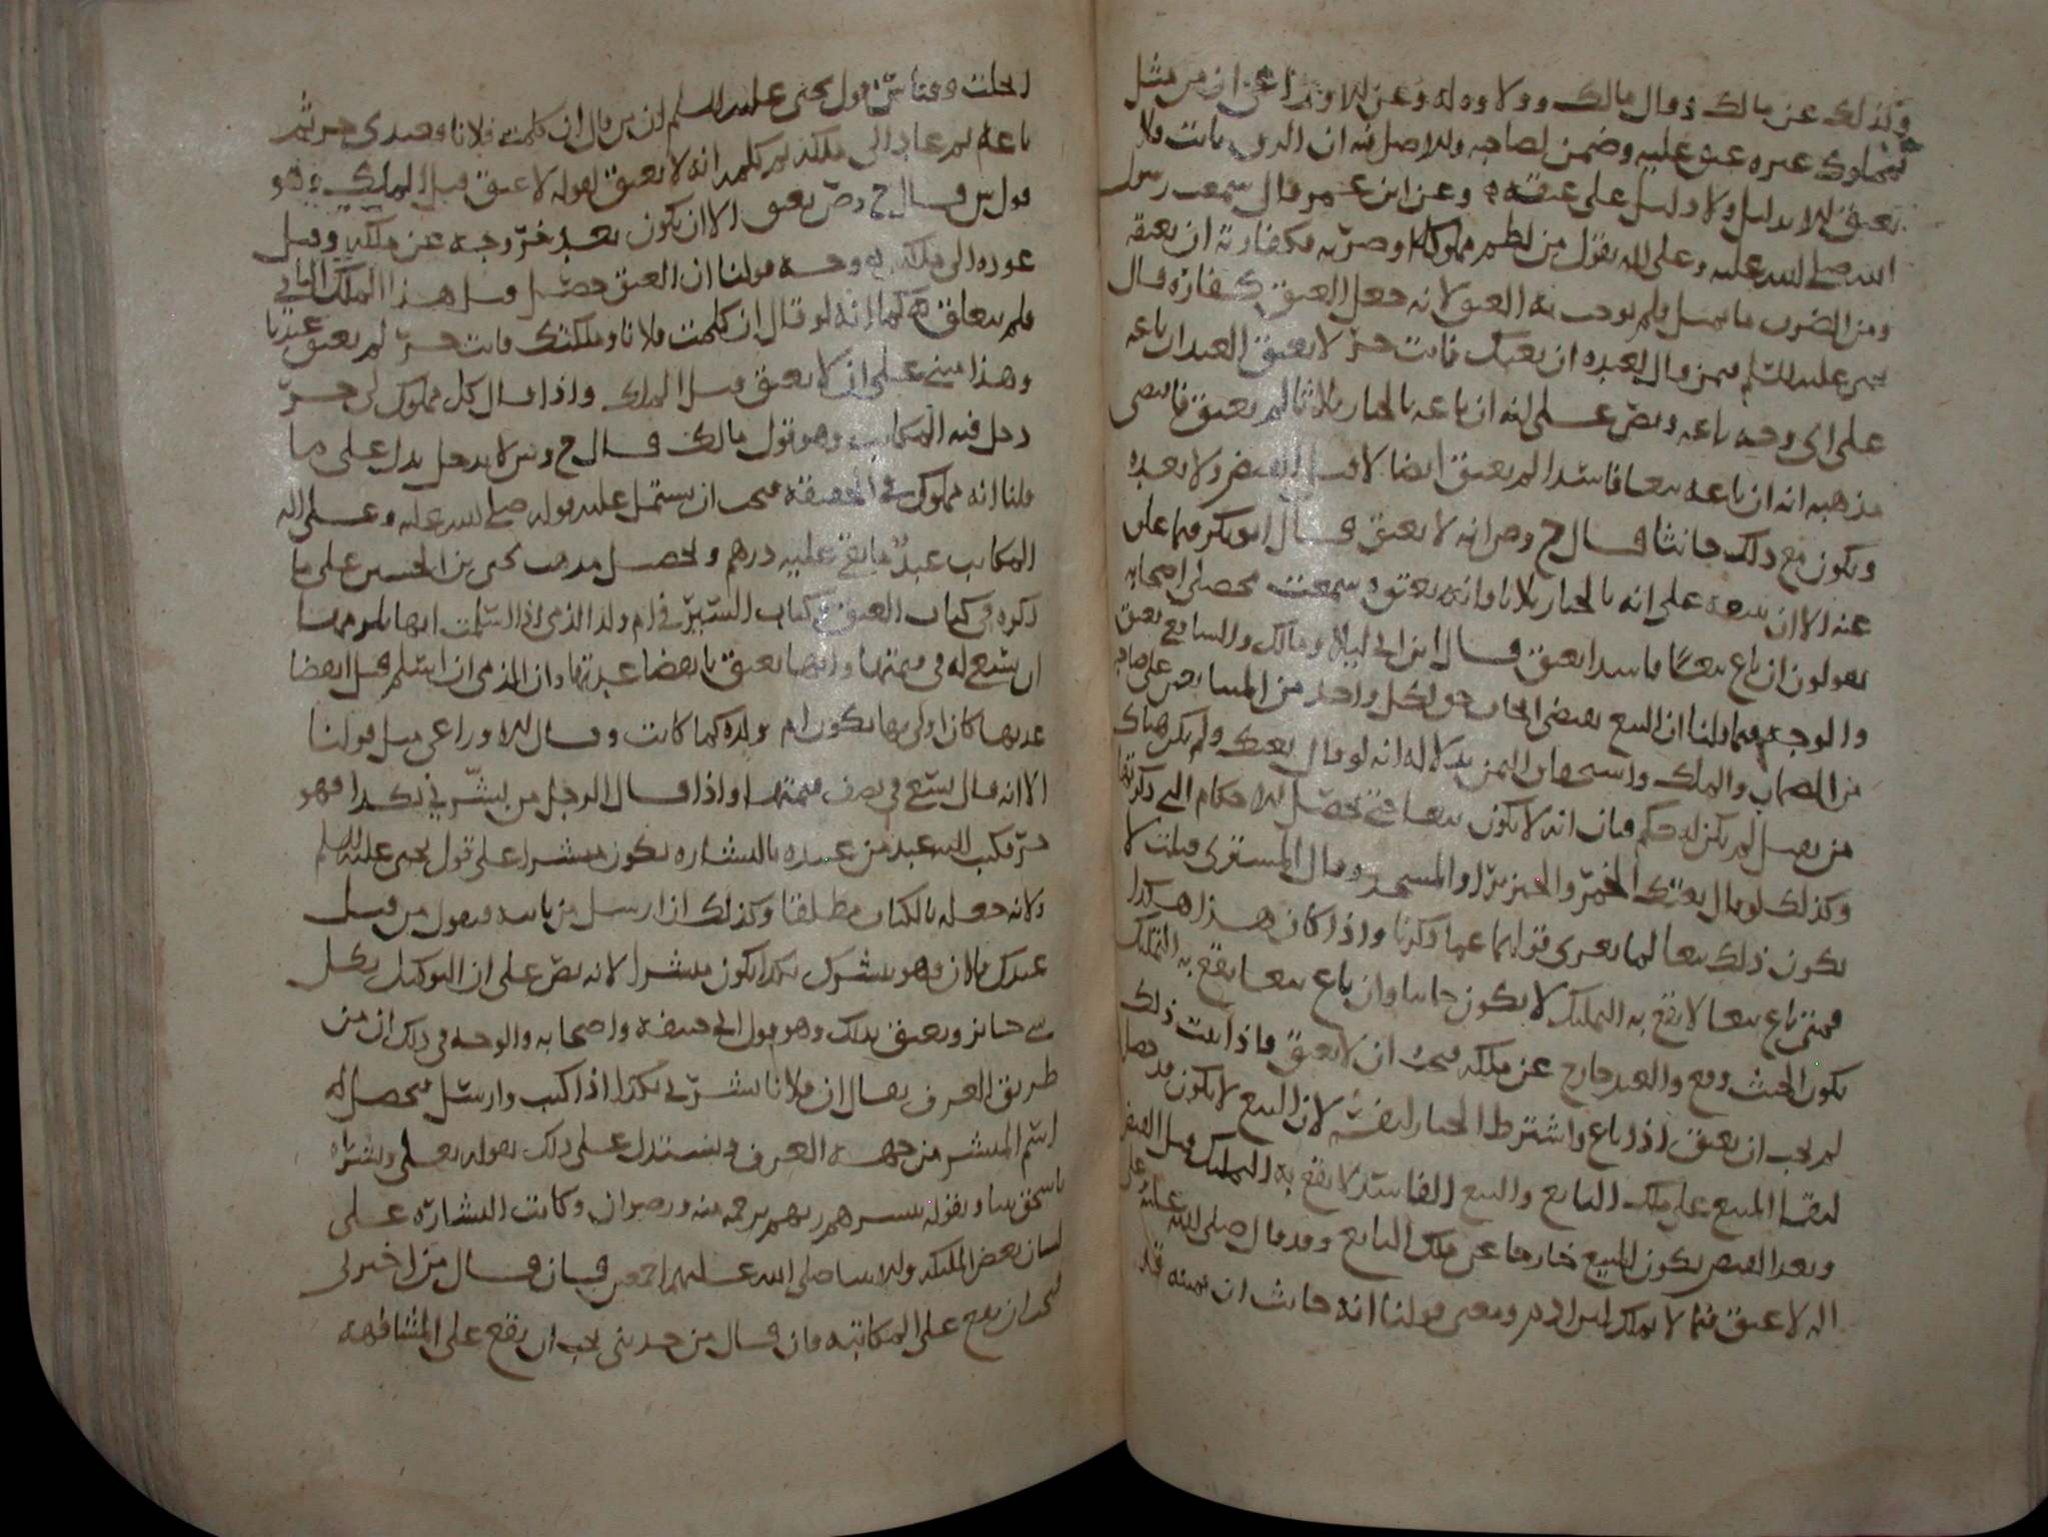 وكذلك عن مالك وقال مالك وولاوه له وعن الاوزاعي ان من مثل
بمملوك غيره عتق عليه وضمن لصاحبه والاصل فيه ان الرق ثابت فلا
يعتق الا بدليل ولا دليل على عتقه وعن ابن عمر قال سمعت رسول
الله صلى الله عليه وعلى اله يقول من لطم مملوكا او ضربه فكفارته ان يعتقه
ومن الضرب ما يمثل فلم يوجب به العتق لانه جعل العتق كفارة قال
يحيى عليه السلم فيمن قال لعبده ان بعتك فانت حر لا يعتق العبد ان باعه
على اي وجه باعه ونص على انه ان باعه بالخيار ثلاثا لم يعتق فاقتضى
مذهبه انه ان باعه بيعا فاسدا لم يعتق ايضا لا قبل القبض ولا بعده
ويكون مع ذلك حانثا قال ح وص انه لا يعتق قال ابو بكر فيما علق
عنه الا ان بيعه على انه بالخيار ثلاثا فانه يعتق وسمعت محصلي اصحابه
يقولون ان باع بيعا فاسدا يعتق قال ابن ابي ليلا ومالك والشافعي يعتق
والوجه فيما قلنا ان البيع يقتضي ايجاب حق لكل واحد من المتبايعين على صاحبه
من الضمان والملك واستحقاق الثمن بدلالة انه لو قال بعتك ولم يكن هناك
من يقبل لم يكن له حكم فبان انه لا يكون بيعا حتى تحصل الاحكام التي ذكرناها
وكذلك لو قال بعتك الخمر والخنزير او المسجد وقال المشتري قبلت لا
يكون ذلك بيعا لما تعرى قولهما عما ذكرنا واذا كان هذا هكذا
فمتى باع بيعا لا يقع به التمليك لا يكون حانثا وان باع بيعا يقع به التمليك
يكون الحنث وقع والعبد خارج عن ملكه فيجب ان لا يعتق فاذا ثبت ذلك
لم يجب ان يعتق اذا باع واشترط الخيار لنفسه لان البيع لا يكون قد حصل
لبقا المبيع على ملك البايع والبيع الفاسد لا يقع به التمليك قبل القبض
وبعد القبض يكون المبيع خارجا عن ملك البايع وقد قال صلى الله عليه وعلى
اله لا عتق فيما لا يملك ابن ادم ومعنى قولنا انه حانث ان يمينه قد
انحلت وقياس قول يحيى عليه السلم ان من قال ان كلمت فلانا فعبدي حر ثم
باعه ثم عاد الى ملكه ثم كلمه انه لا يعتق لقوله لا عتق قبل الملك وهو
قول ش قال ح وص يعتق الا ان يكون بعد خروجه عن ملكه وقبل
عوده الى ملكه وجه قولنا ان العتق حصل قبل هذا الملك الثاني
فلم يتعلق به كما انه لو قال ان كلمت فلانا وملكتك فانت حر لم يعتق عندنا
وهذا مبني على ان لا يعتق قبل الملك واذا قال كل مملوك لي حر
دخل فيه المكاتب وهو قول مالك قال ح وش لا يدخل يدل على ما
قلنا انه مملوك في الحقيقة فيجب ان يشتمل عليه قوله صلى الله عليه وعلى اله
المكاتب عبد ما بقي عليه درهم وتحصيل مذهب يحيى بن الحسين على ما
ذكره في كتاب العتق وكتاب السير في ام ولد الذمي اذا اسلمت انها
ان تسعى له في قيمتها وانها تعتق بانقضا عدتها وان الذمي ان اسلم قبل انقضا
عدتها كان اولى بها تكون ام ولده كما كانت وقال الاوزاعي مثل قولنا
الا انه قال تسعى في نصف قيمتها واذا قال الرجل من بشرني بكذا فهو
حر فكتب اليه عبد من عبيده بالبشاره يكون مبشرا على قول يحيى عليه السلم
ولانه جعله بالكتاب مطلقا وكذلك ان ارسل من ياتيه فيقول من قبل
عبدك فلان وهو يبشرك بكذا يكون مبشرا لانه نص على ان التوكيل بكل
شي جائز ويعتق بذلك وهو قول ابي حنيفة واصحابه والوجه في ذلك ان من
طريق العرف يقال ان فلانا بشرني بكذا اذا كتب وارسل فيحصل له
اسم المبشر من جهة العرف ويستدل على ذلك بقوله تعالى وبشرناه
باسحق نبيا وبقوله يبشرهم ربهم برحمه منه ورضوان وكانت البشارة على
لسان بعض الملئكه والانبيا صلى الله عليهم اجمعين فان قال من اخبرني
يجب ان يقع على المكاتبه فان قال من حدثني يجب ان يقع على المشافهه